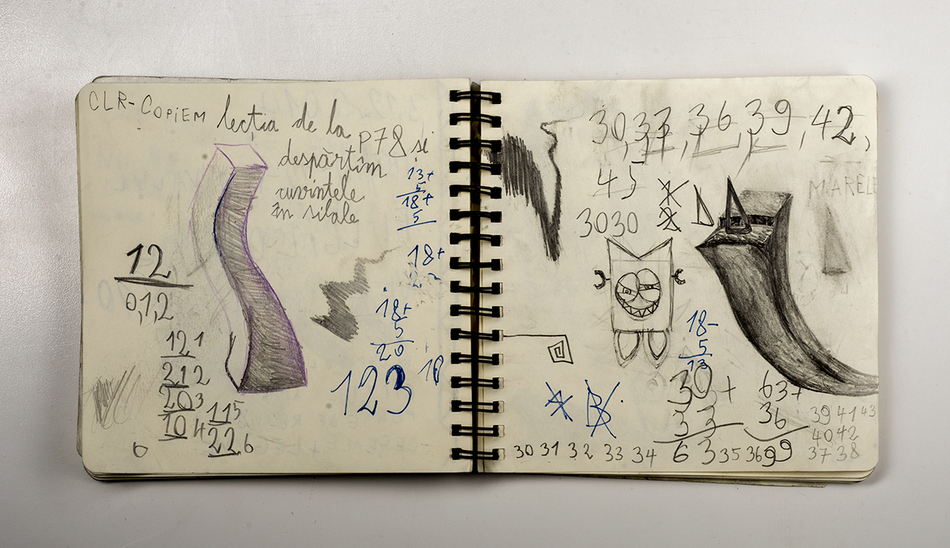 CLR-COPIEM lecția de la
P78 și
despărțim
cuvintele
în silabe
13+
5
18+
5
18+
12
0,1,2
18+
5
20
18
123
121 1
212 2
203 3
10 4
115 5
226 6
6
30, 33, 36, 39, 42,
45
3030
MARELE
18-
5
13
30+
33
63
63+
36
99
39 41 43
40 42
37 38
30 31 32 33 34 35 36